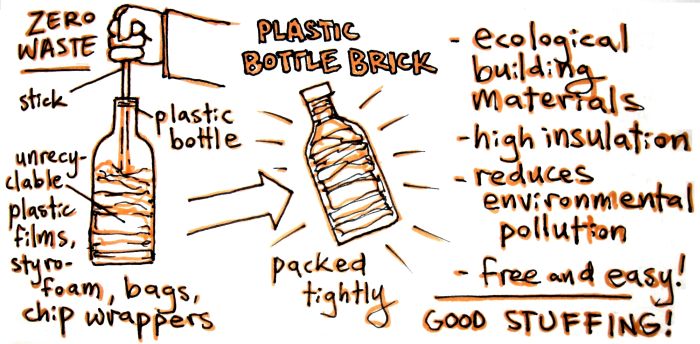 ZERO
WASTE
stick
plastic
bottle
unrecy-
clable
plastic
films,
styro-
foam, bags,
chip wrappers
PLASTIC
BOTTLE BRICK
packed
tightly
- ecological
building
materials
- high insulation
- reduces
environmental
pollution
- free and easy!
GOOD STUFFING!